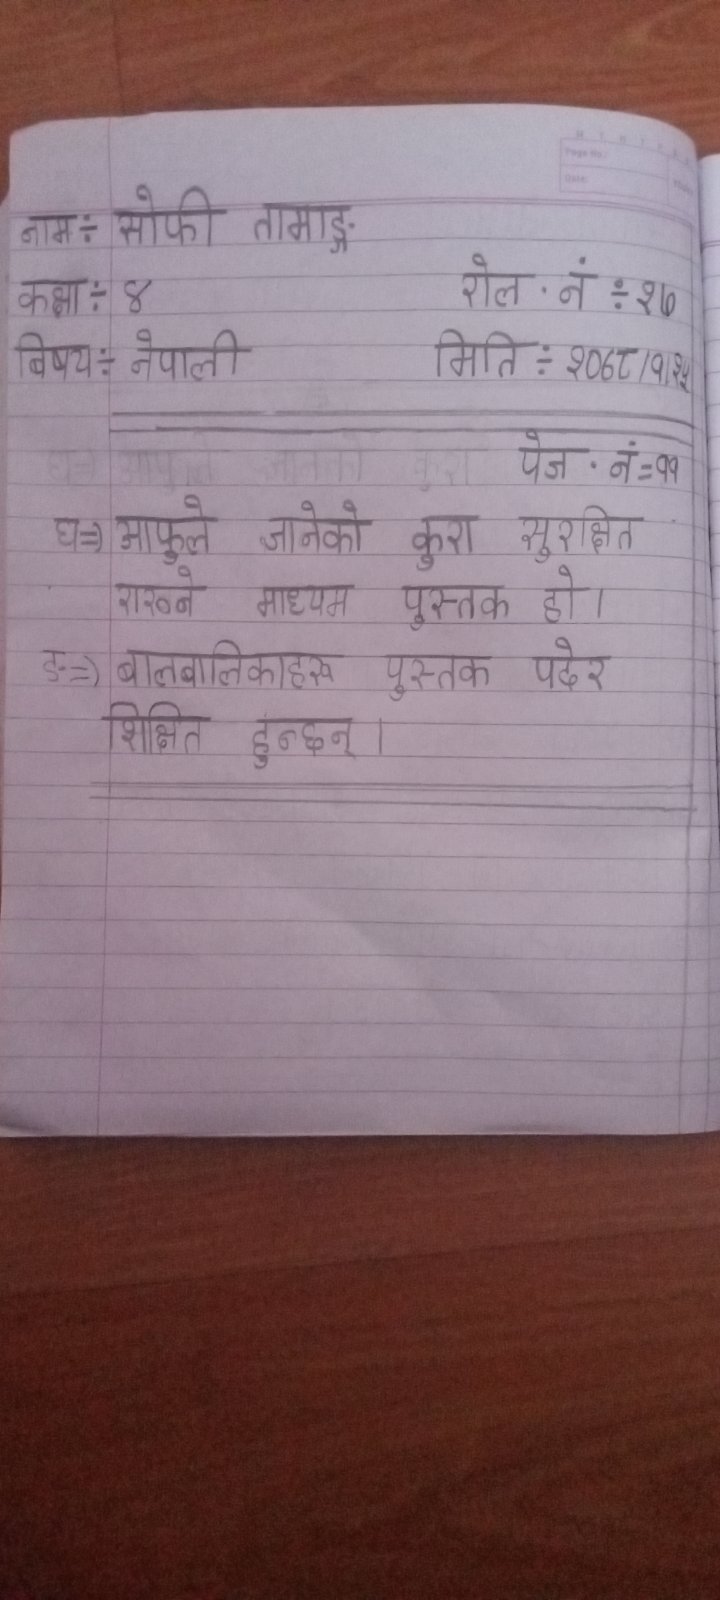 Page No.:
Date:
नाम÷ सोफी तामाङ्ग
कक्षा÷ ४ रोल . नं ÷ २७
विषय÷ नेपाली मिति ÷ २०७८/१/२५
पेज . नं = ११
घ⇒ आफुले जानेको कुरा सुरक्षित
राख्ने माध्यम पुस्तक हो।
ङ⇒ बालबालिकाहरू पुस्तक पढेर
शिक्षित हुन्छन्।